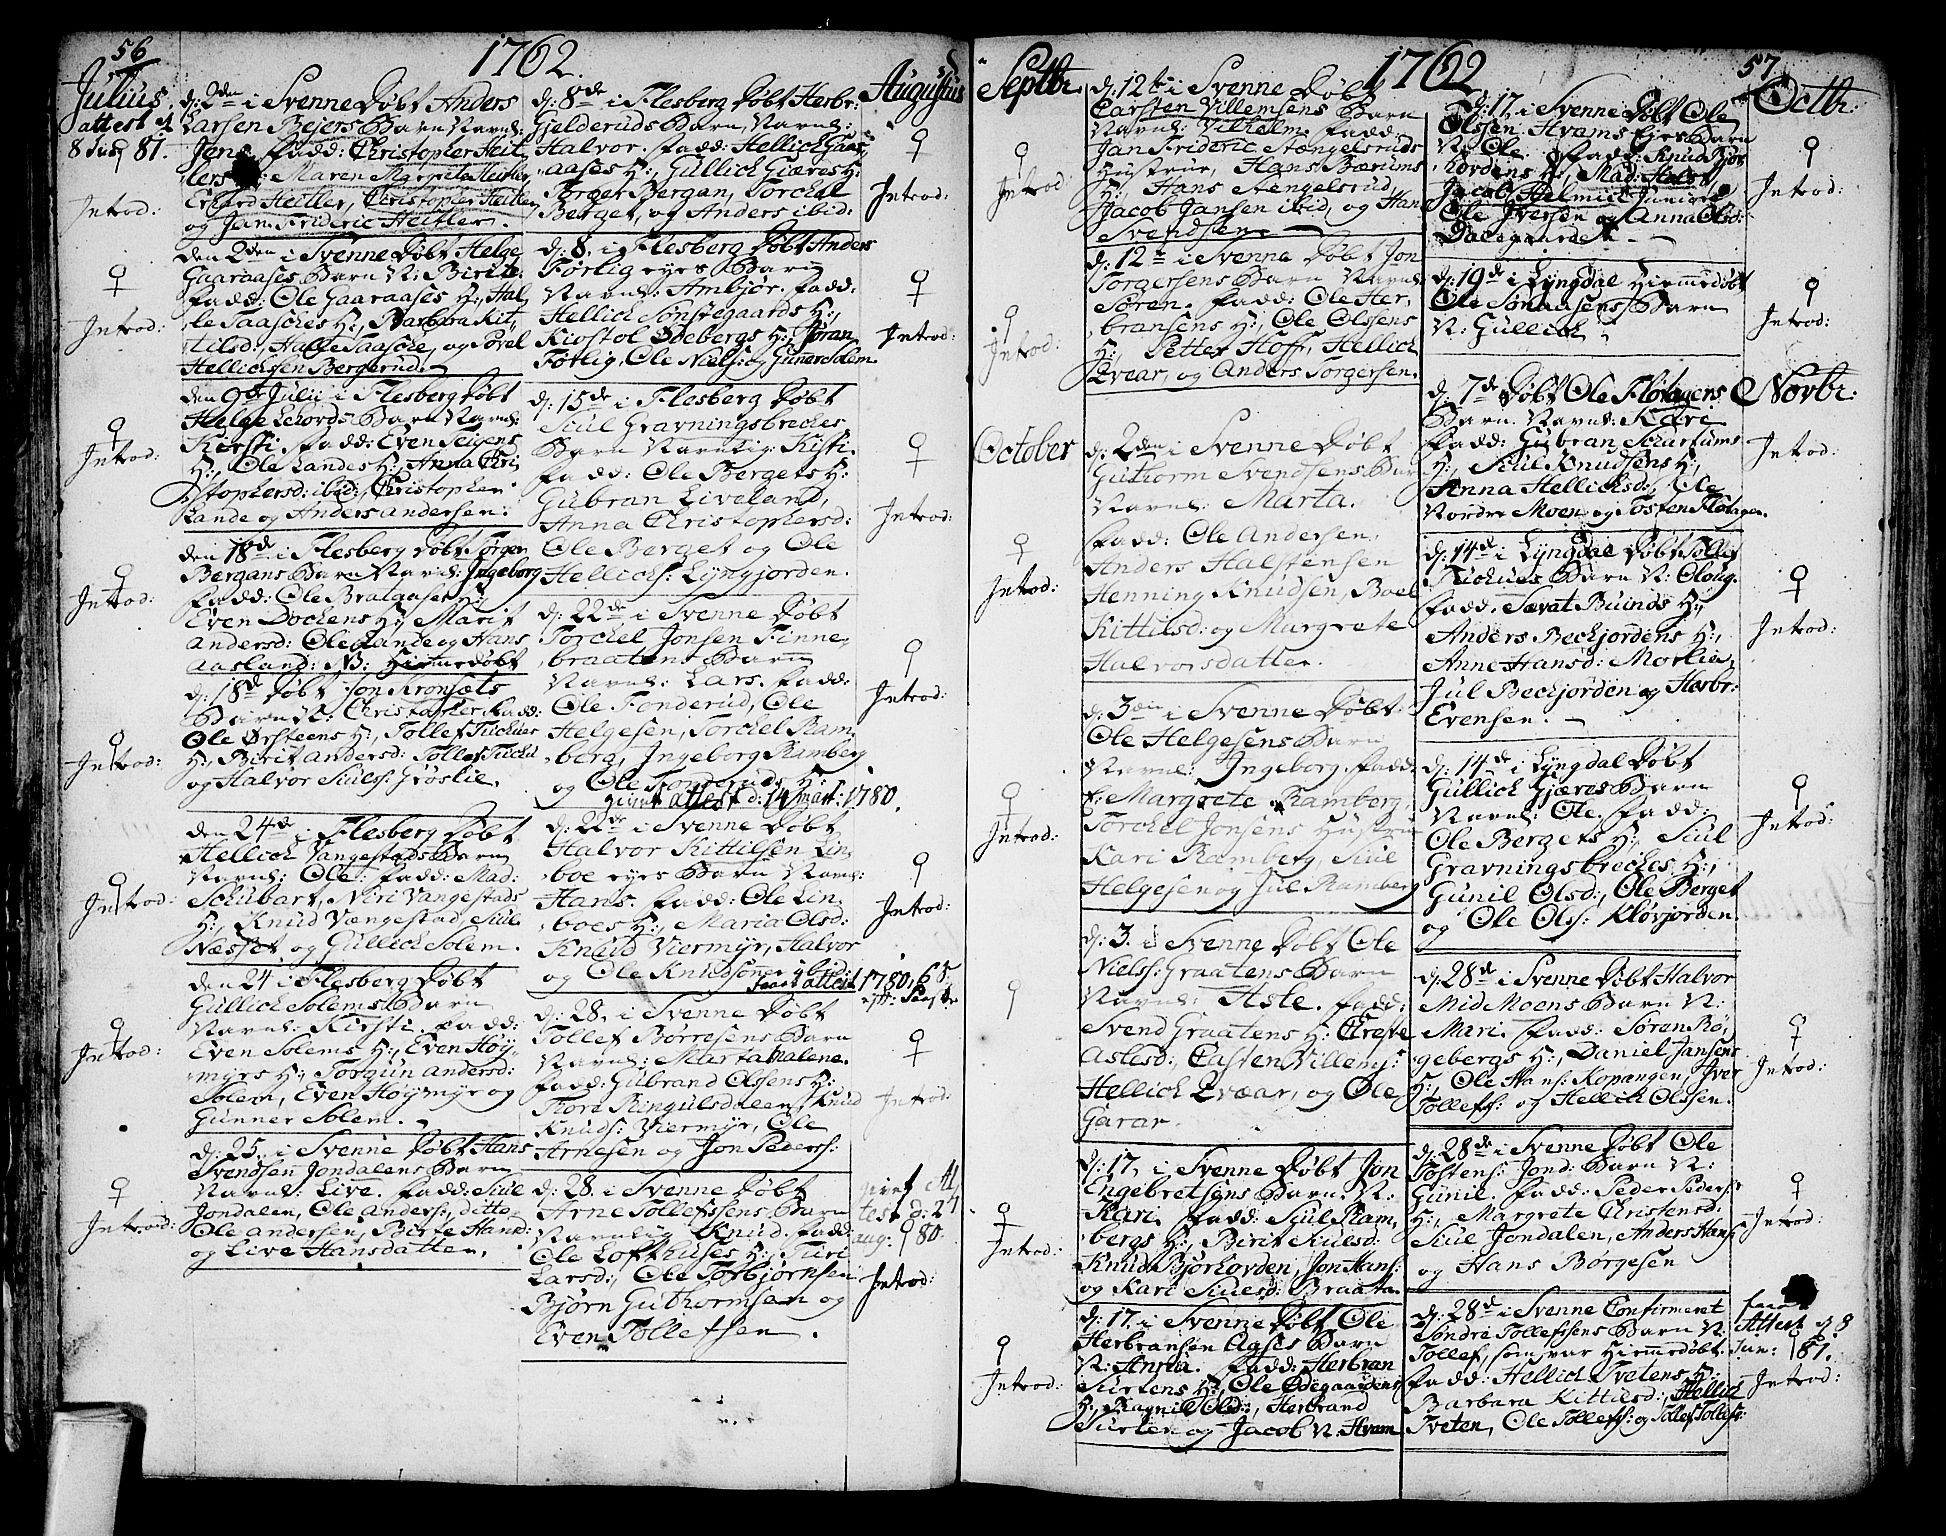 56
1762.
Julius
attest d
8 Juny 87.
Introd:
Introd:
Introd:
Introd:
Introd:
Introd:
Introd:
Introd:
d: 2den i Svenne Døbt Anders
Larsen Bejers Barn Navnl:
Jens. fadd: Christopher Heit,
lers H: Maren Margreta Heitler,
Erhard Heitler, Christopher Heitler,
og Jan Frideric Heitler.
den 2den i Svenne Døbt Helge
Gaaraases Barn N: Birit.
fadd: Ole Gaaraases H:, Hal,
le Taasches H:, Barbara Kit,
tilsd:, Halle Taasche, og Povel
Hellichsen Bergerud.
den 9de Julii i Flesberg Døbt
Helge Leiords Barn Navnl:
Kirsti. fadd: Even Seigens
H:, Ole Landes H:, Anna Chri
stophersd: ibid:, Christopher
Lande og Anders andersen.
den 18de i Flesberg Døbt Torger
Bergans Barn Navnl: Ingeborg
fadd: Ole Bralaases H:
Even Dochens H:, Marit
andersd: Ole Lande og Hans
aasland: N: Hiemedøbt
d: 18d Døbt Jon Kronsæts
Barn N: Christopher. fadd:
Ole Ørsteens H:, Tollef Tuchues
H:, Birit andersd: Tollef Tuchu
og Halvor Siuls: Grøslie.
den 24de i Flesberg Døbt
Hellich Vangestads Barn
Navnl: Ole. fadd: Mad:
Schubart, Niri Vangestads
H:, Knud Vængestad, Siul
Næsset, og Gullich Solem.
den 24 i Flesberg Døbt
Gullich Solems Barn
Navnl: Kirsti. fadd:
Even Solems H:, Even Høy,
myrs H:, Torgun andersd:
Solem, Even Høymyr og
Gunner Solem.
d: 25. i Svenne Døbt Hans
Svendsen Jondalens Barn
Navnl: Live. fadd: Siul
Jondalen, Ole anders:, ditto
Ole andersen, Birte Hansd:
og Live Hansdatter.
d: 8de i Flesberg Døbt Herbr:
Gjelderuds Barn, Navnl:
Halvor. fadd: Hellich Gaar,
aases H:, Gullich Giæres H:
Torger Bergan, Torchel
Berget, og Anders ibid:
d: 8. i Flesberg Døbt Anders
Førlig eyes Barn
Navnl: Ambjør. fadd:
Hellich Sønstegaards H:,
Kiøstol Ødebergs H:, Jøran
Førlig, Ole Niels: og Gunner Solem
d: 15de i Flesberg Døbt
Siul Gravningsbreches
Barn Navnlig: Kisti.
fadd: Ole Bergets H:
Gubran Liveland,
Anna Christophersd:
Ole Berget og Ole
Hellichs: Lyngjorden.
d: 22de i Svenne Døbt
Torchel Jonsen Finne,
braatens Barn
Navnl: Lars. fadd:
Ole Fonderud, Ole
Helgesen, Torchel Ram,
berg, Ingeborg Ramberg
og Ole Fonderuds H:
givet attest d: 14 Mart: 1780.
d: 22de i Svenne Døbt
Halvor Kittilsen Lin,
boe eyes Barn Navnl:
Hans. fadd: Ole Lin,
boes H:, Maria Olsd:
Knud Viermyr, Halvor
og Ole Knudsøner ibid:
faaet attest 1780, 6 S.
d: 28. i Svenne Døbt
Tollef Børresens Barn
Navnl: Marta Malene.
fadd: Gubrand Olssens H:
Tore Ringulsdalen, Knud
Knuds: Viermyr, Ole
Arnesen og Jon Peders:
d: 28. i Svenne Døbt
Arne Tollefssens Barn
Navnlig Knud. fadd:
Ole Lofthuses H:, Turi
Larsd:, Ole Torbjørnsen
Bjørn Guthormsen og
Even Tollefsen.
Augustus
Introd:
Introd:
Introd:
Introd:
Introd:
Introd:
givet At,
test d: 27
aug: 80.
Introd:
1762
57
Septbr.
Introd
Introd:
October
Introd:
Introd:
Introd:
Introd:
d: 12te i Svenne Døbt
Carsten Villemsens Barn
Navnl: Vilhelm. fadd:
Jan Frideric Stengelsruds
Hustrue, Hans Bærums
H:, Hans Stengelsrud,
Jacob Jansen ibid, og Hans
Svendsen.
d: 12te i Svenne Døbt Jon
Torgersens Barn Navnl:
Søren. fadd: Ole Her,
bransens H:, Ole Olssens
H:, Petter Hoff, Hellich
Qvear, og Anders Torgersen.
d: 2den i Svenne Døbt
Guthorm Svendsens Barn
Navnl: Marta.
fadd: Ole Andersen,
Anders Halstensen
Henning Knudsen, Boel
Kittilsd: og Margrete
Halvorsdatter.
d: 3die i Svenne Døbt:
Ole Helgesens Barn
Navnl: Ingeborg. fadd:
Margrete Ramberg,
Torchel Jonsens Hustru
Kari Ramberg, Siul
Helgesen og Jul Ramberg
d: 3. i Svenne Døbt Ole
Niels: Graatens Barn
Navnl: Aste. fadd:
Svend Graatens H: Grete
Astesd: Casten Villems:
Hellich Qvæar, og Ole
Garar.
d: 17. i Svenne Døbt Jon
Engebretsens Barn N:
Kari. fadd: Siul Ram,
bergs H:, Birit Siulsd:
Knud Bjørhovden, Jon Hans:
og Kari Siulsd: Braata.
d: 17. i Svenne Døbt Ole
Herbransen Aases Barn
N: Anna. fadd: Herbran
Surtens H:, Ole Ødegaardens
H:, Ragnil Olsd:, Herbrand
Surten og Jacob N: Hvam
d: 17. i Svenne Døbt Ole
Olssen Hvams Eyes Barn
N: Ole. fadd: Knud Bjør,
hovdens H:, Mad: Halst,
Jacob Helmich Junior
Ole Iversen og Anna Olsd:
Dalsgaardet.
d: 19de i Lyngdal Hiemmedøbt
Ole Sønaasens Barn
N: Gullich.
d: 7de Døbt Ole Flotagers
Barn. Navnl: Kari
fadd: Gubran Scharsums
H:, Siul Knudsens H:,
Anna Hellichsd:, Ole
Nordre Moen og Tosten Flotager.
d: 14de i Lyngdal Døbt Tollef
Tuchues Barn N: Oloug.
fadd. Sævat Buinds H:
Anders Bechjordens H:,
Anne Hansd: Morlia,
Jul Bechjorden og Herbr:
Evensen.
d: 14de i Lyngdal Døbt
Gullich Gjæres Barn
Navnl: Ole. fadd:
Ole Bergets H:, Siul
Gravningsbreches H:,
Gunil Olsd:, Ole Berget
og Ole Ols: Kløvjorden.
d: 28de i Svenne Døbt Halvor
Mid Moens Barn N:
Mari. fadd: Søren Rø,
gebergs H:, Daniel Jansens
H:, Ole Hans: Kopangen, Iver
Tollefs: og Hellich Olssen.
d: 28de i Svenne Døbt Ole
Tostens: Jond: Barn N:
Gunil. fadd: Peder Peders:
H:, Margrete Christensd:
Siul Jondalen, Anders Hans:
og Hans Børgesen
d: 28d i Svenne Confirmeret
Søndre Tollefssens Barn N.
Tollef, som var Hiemmedøbt.
fadd: Hellich Tvetens H:
Barbara Kittilsd:, Hellich
Tveten, Ole Tollefs: og Tollef Tollefs:
Octbr:
Introd:
Introd:
Novbr:
Introd:
Introd:
Introd:
Introd:
Introd:
Attest d 8
Jun: 87.
Introd: